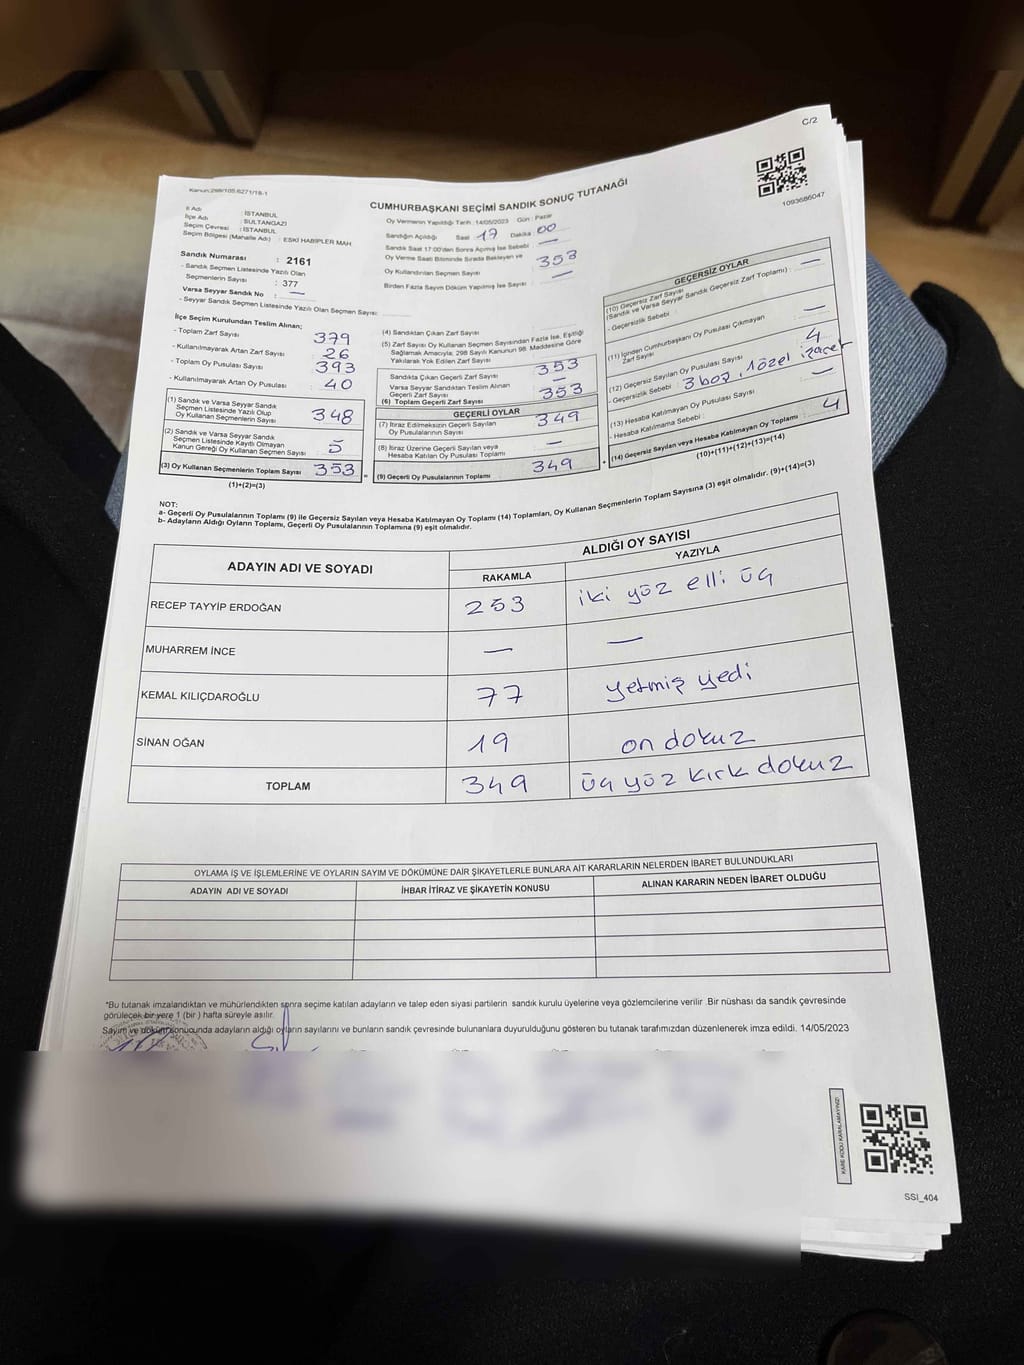 C/2
Kanun:298/105.6271/18-1
CUMHURBAŞKANI SEÇİMİ SANDIK SONUÇ TUTANAĞI
1093686047
İl Adı : İSTANBUL
İlçe Adı : SULTANGAZİ
Seçim Çevresi : İSTANBUL
Seçim Bölgesi (Mahalle Adı) : ESKİ HABİPLER MAH.
Sandık Numarası : 2161
- Sandık Seçmen Listesinde Yazılı Olan
Seçmenlerin Sayısı : 377
Varsa Seyyar Sandık No : —
- Seyyar Sandık Seçmen Listesinde Yazılı Olan Seçmen Sayısı:
Oy Vermenin Yapıldığı Tarih : 14/05/2023 Gün : Pazar
Sandığın Açıldığı Saat 17 Dakika 00
Sandık Saat 17:00'den Sonra Açılmış İse Sebebi : —
Oy Verme Saati Bitiminde Sırada Bekleyen ve
Oy Kullandırılan Seçmen Sayısı 353
Birden Fazla Sayım Döküm Yapılmış İse Sayısı : —
İlçe Seçim Kurulundan Teslim Alınan;
- Toplam Zarf Sayısı : 379
- Kullanılmayarak Artan Zarf Sayısı : 26
- Toplam Oy Pusulası Sayısı : 393
- Kullanılmayarak Artan Oy Pusulası : 40
(1) Sandık ve Varsa Seyyar Sandık
Seçmen Listesinde Yazılı Olup
Oy Kullanan Seçmenlerin Sayısı 348
(2) Sandık ve Varsa Seyyar Sandık
Seçmen Listesinde Kayıtlı Olmayan
Kanun Gereği Oy Kullanan Seçmen Sayısı 5
(3) Oy Kullanan Seçmenlerin Toplam Sayısı 353
(1)+(2)=(3)
(4) Sandıktan Çıkan Zarf Sayısı
(5) Zarf Sayısı Oy Kullanan Seçmen Sayısından Fazla İse, Eşitliği
Sağlamak Amacıyla, 298 Sayılı Kanunun 98. Maddesine Göre
Yakılarak Yok Edilen Zarf Sayısı
Sandıkta Çıkan Geçerli Zarf Sayısı 353
Varsa Seyyar Sandıktan Teslim Alınan
Geçerli Zarf Sayısı —
(6) Toplam Geçerli Zarf Sayısı 353
GEÇERLİ OYLAR
(7) İtiraz Edilmeksizin Geçerli Sayılan
Oy Pusulalarının Sayısı 349
(8) İtiraz Üzerine Geçerli Sayılan veya
Hesaba Katılan Oy Pusulası Toplamı —
(9) Geçerli Oy Pusulalarının Toplamı 349
GEÇERSİZ OYLAR
(10) Geçersiz Zarf Sayısı
(Sandık ve Varsa Seyyar Sandık Geçersiz Zarf Toplamı) : —
- Geçersizlik Sebebi :
(11) İçinden Cumhurbaşkanı Oy Pusulası Çıkmayan
Zarf Sayısı —
(12) Geçersiz Sayılan Oy Pusulası Sayısı : 4
- Geçersizlik Sebebi : 3 boş, 1 özel işaret
(13) Hesaba Katılmayan Oy Pusulası Sayısı : —
- Hesaba Katılmama Sebebi :
(14) Geçersiz Sayılan veya Hesaba Katılmayan Oy Toplamı : 4
(10)+(11)+(12)+(13)=(14)
NOT:
a- Geçerli Oy Pusulalarının Toplamı (9) ile Geçersiz Sayılan veya Hesaba Katılmayan Oy Toplamı (14) Toplamları, Oy Kullanan Seçmenlerin Toplam Sayısına (3) eşit olmalıdır. (9)+(14)=(3)
b- Adayların Aldığı Oyların Toplamı, Geçerli Oy Pusulalarının Toplamına (9) eşit olmalıdır.
ADAYIN ADI VE SOYADI
ALDIĞI OY SAYISI
RAKAMLA YAZIYLA
RECEP TAYYİP ERDOĞAN 253 iki yüz elli üç
MUHARREM İNCE — —
KEMAL KILIÇDAROĞLU 77 yetmiş yedi
SİNAN OĞAN 19 on dokuz
TOPLAM 349 üç yüz kırk dokuz
OYLAMA İŞ VE İŞLEMLERİNE VE OYLARIN SAYIM VE DÖKÜMÜNE DAİR ŞİKAYETLERLE BUNLARA AİT KARARLARIN NELERDEN İBARET BULUNDUKLARI
ADAYIN ADI VE SOYADI İHBAR İTİRAZ VE ŞİKAYETİN KONUSU ALINAN KARARIN NEDEN İBARET OLDUĞU
*Bu tutanak imzalandıktan ve mühürlendikten sonra seçime katılan adayların ve talep eden siyasi partilerin sandık kurulu üyelerine veya gözlemcilerine verilir .Bir nüshası da sandık çevresinde
görülecek bir yere 1 (bir ) hafta süreyle asılır.
Sayım ve döküm sonucunda adayların aldığı oyların sayılarını ve bunların sandık çevresinde bulunanlara duyurulduğunu gösteren bu tutanak tarafımızdan düzenlenerek imza edildi. 14/05/2023
KARE KODU KARALAMAYINIZ!
SSI_404